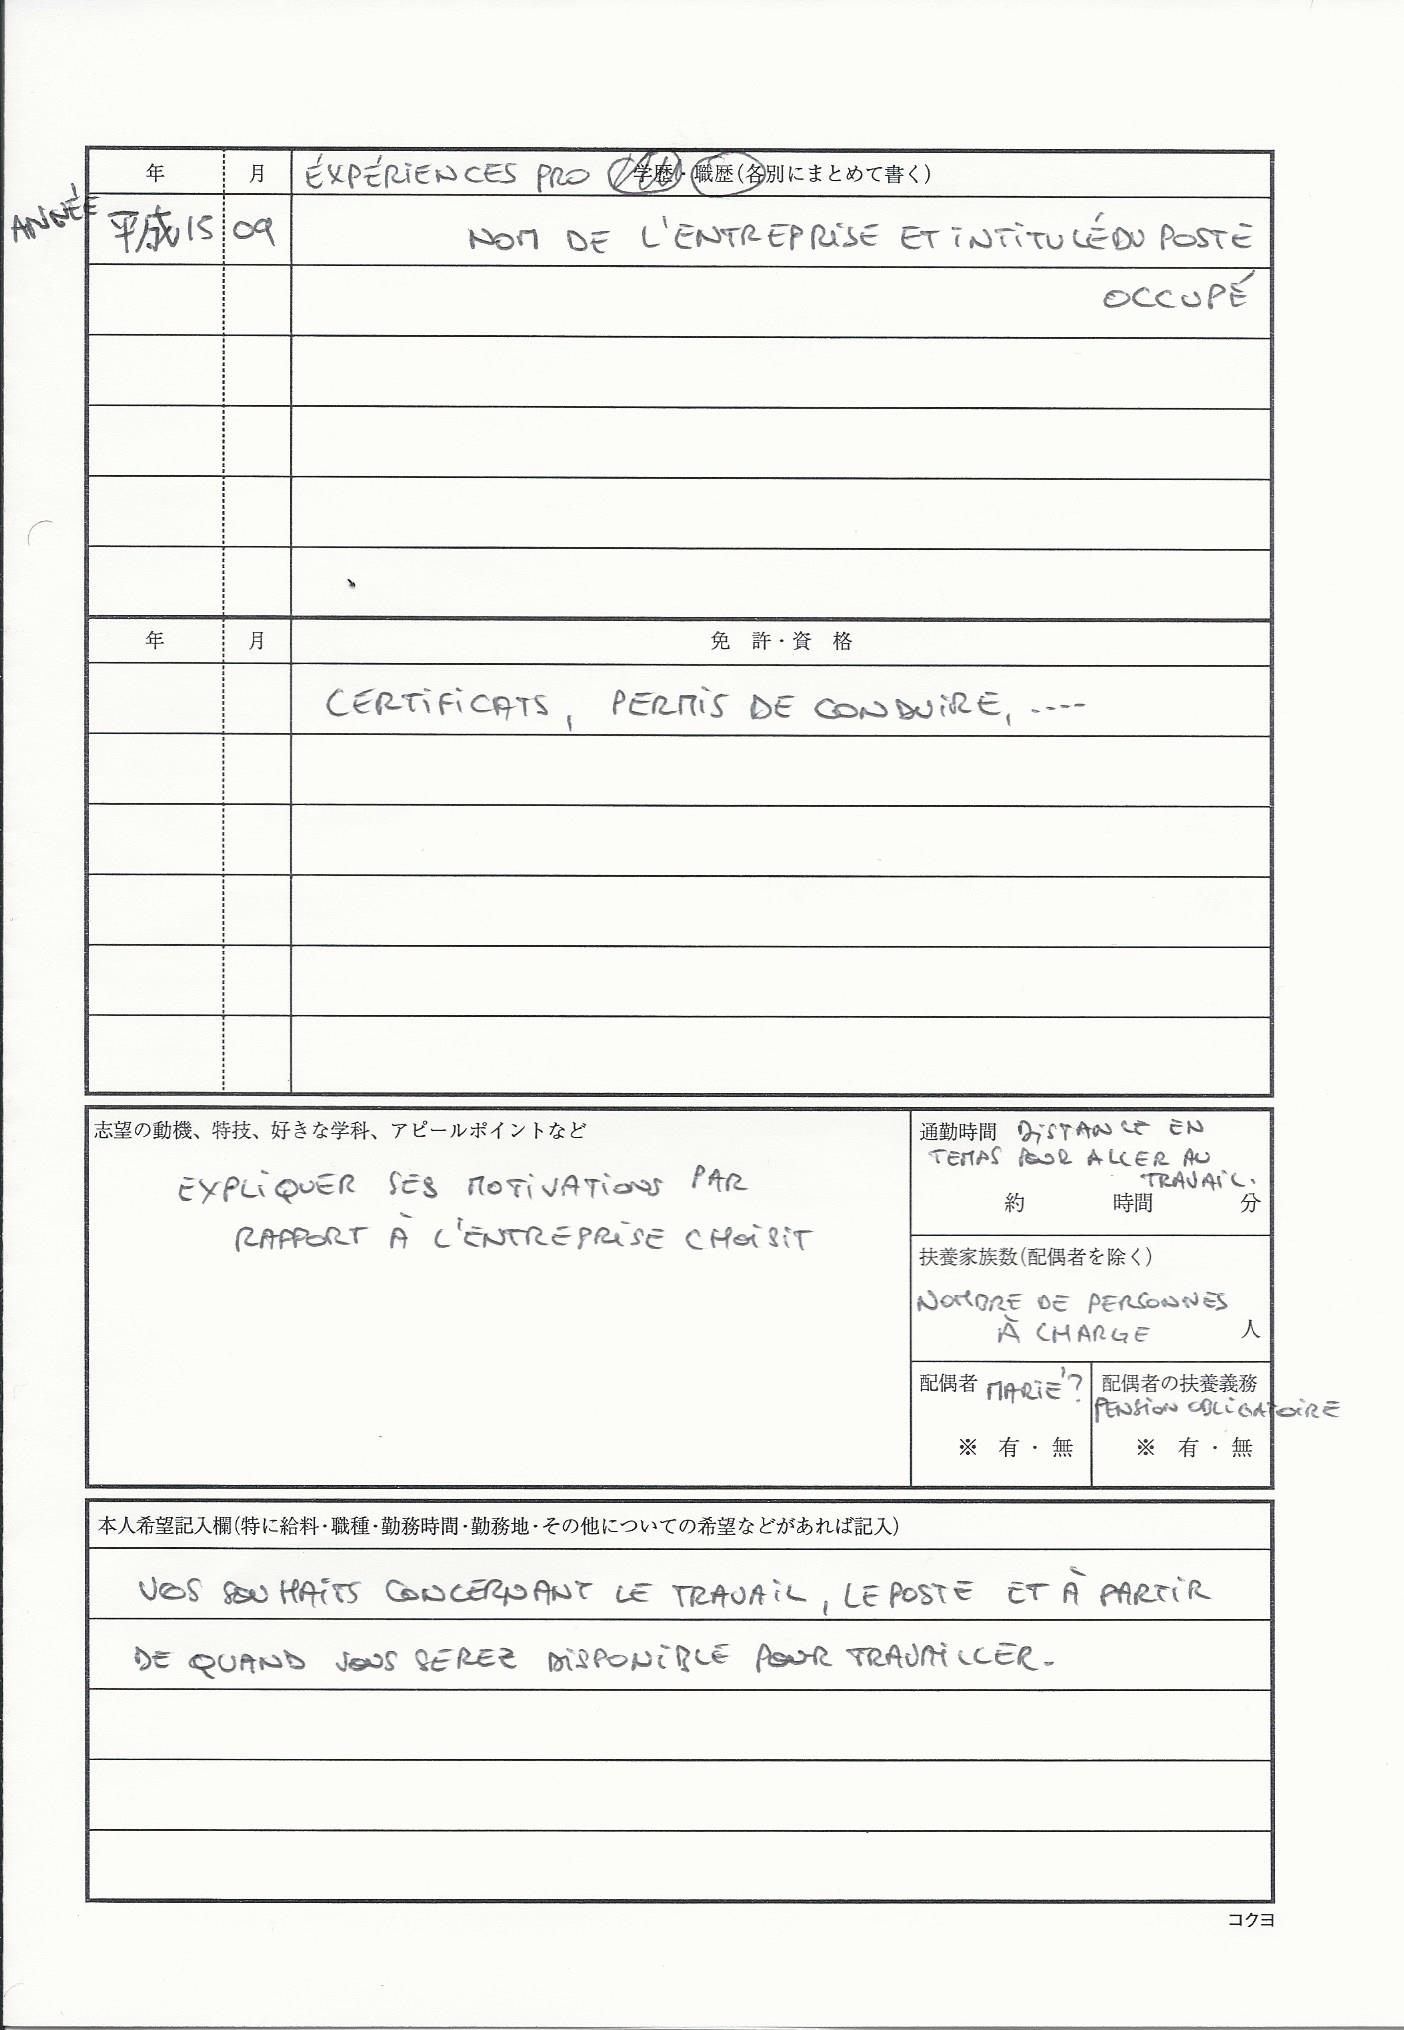 年 月 ÉXPÉRIENCES PRO 学歴・職歴(各別にまとめて書く)
ANNÉE 平成15 09 NOM DE L'ENTREPRISE ET INTITULÉ DU POSTE
OCCUPÉ
年 月 免 許・資 格
CERTIFICATS, PERMIS DE CONDUIRE, ----
志望の動機、特技、好きな学科、アピールポイントなど
EXPLIQUER SES MOTIVATIONS PAR
RAPPORT À L'ENTREPRISE CHOISIT
通勤時間 DISTANCE EN
TEMPS POUR ALLER AU
TRAVAIL.
約 時間 分
扶養家族数(配偶者を除く)
NOMBRE DE PERSONNES
À CHARGE 人
配偶者 MARIÉ?
※ 有・無
配偶者の扶養義務
PENSION OBLIGATOIRE
※ 有・無
本人希望記入欄(特に給料・職種・勤務時間・勤務地・その他についての希望などがあれば記入)
VOS SOUHAITS CONCERNANT LE TRAVAIL, LE POSTE ET À PARTIR
DE QUAND VOUS SEREZ DISPONIBLE POUR TRAVAILLER.
コクヨ